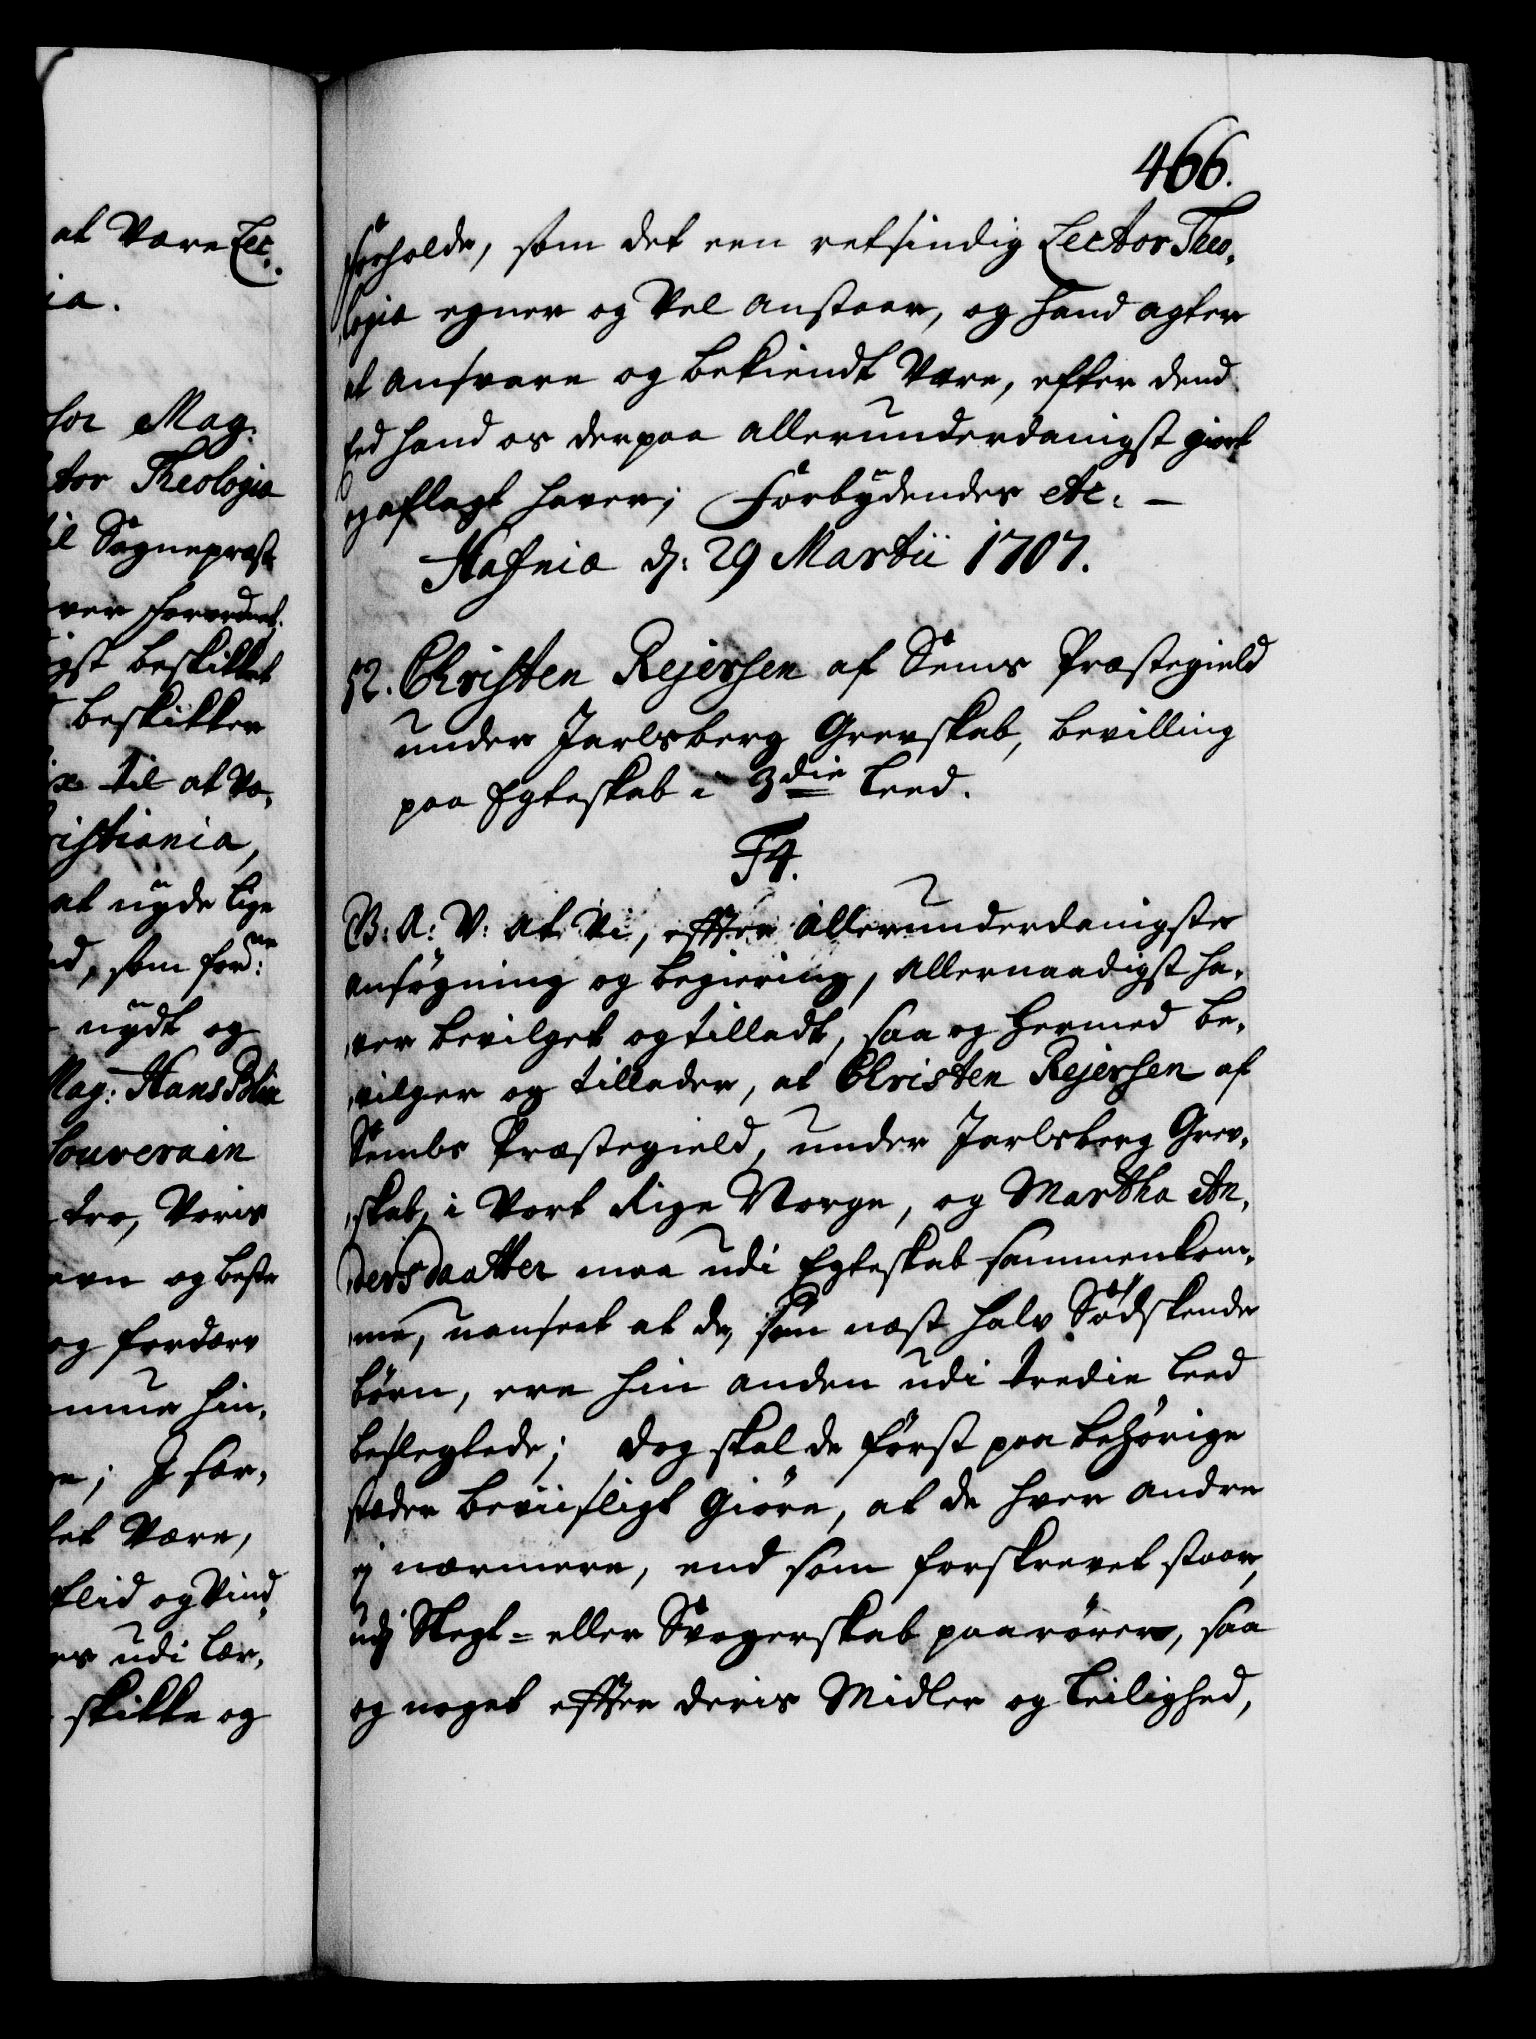 at være Lec,
ia.
for Mag:
tor Theologiæ
il Sognepræst
ver forordnet.
igst beskikket
beskikker
til at væ,
ristiania,
at nyde lige
d, som for:ne
nydt og
Mag: Hans Blix
Souverain
tro, Voris
avn og beste
og fordærv
omme hin,
e; J sær,
et være,
flid og Vind,
es udi Lær,
skikke og
466.
forholde, som det een retsindig Lector Theo,
logiæ egner og vel anstaar, og hand agter
at ansvare og bekiendt være, efter dend
Eed hand os derpaa allerunderdanigst giort
og aflagt haver; Forbydendes etc. —
Hafniæ d: 29 Martii 1707.
52. Christen Rejersen af Sems Præstegield
under Jarlsberg Grevskab, bevilling
paa Egteskab i 3die Leed.
F4.
B: A: V: At Vi, effter allerunderdanigste
ansøgning og begiering, allernaadigst ha,
ver bevilget og tilladt, saa og hermed be,
vilger og tillader, at Christen Rejersen af
Sembs Præstegield, under Jarlsberg Grev,
skab, i Vort Rige Norge, og Martha An,
dersdaatter maa udi Egteskab sammenkom,
me, uanseet at de, som næst halv Sødskende
børn, ere hin anden udi tredie Leed
beslegtede; dog skal de først paa behørige
stæder beviisligt giøre, at de hver andre
ej nærmere, end som forskrevet staar,
udj Slegt- eller Svogerskab paarører, saa
og noget effter deris Midler og Leilighed,